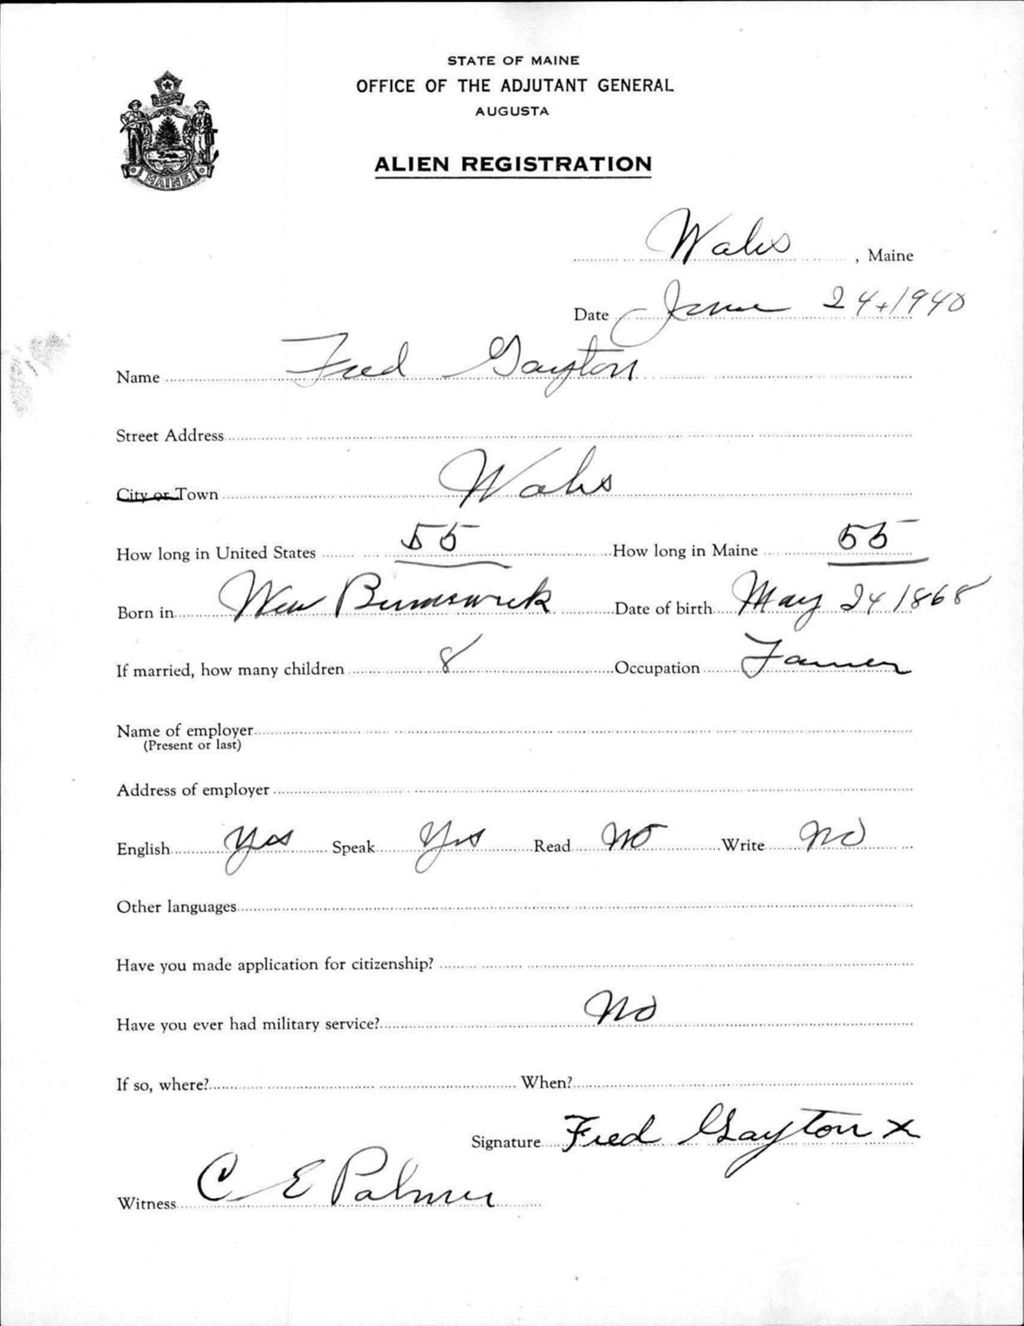 STATE OF MAINE
OFFICE OF THE ADJUTANT GENERAL
AUGUSTA
ALIEN REGISTRATION
MAINE
Wales, Maine
Date June 24, 1940
Name Fred Gayton
Street Address
City or Town Wales
How long in United States 55 How long in Maine 55
Born in New Brunswick Date of birth May 24 1868
If married, how many children 8 Occupation Farmer
Name of employer
(Present or last)
Address of employer
English Yes Speak Yes Read No Write No
Other languages
Have you made application for citizenship?
Have you ever had military service? No
If so, where? When?
Signature Fred Gayton x
Witness C E Palmer